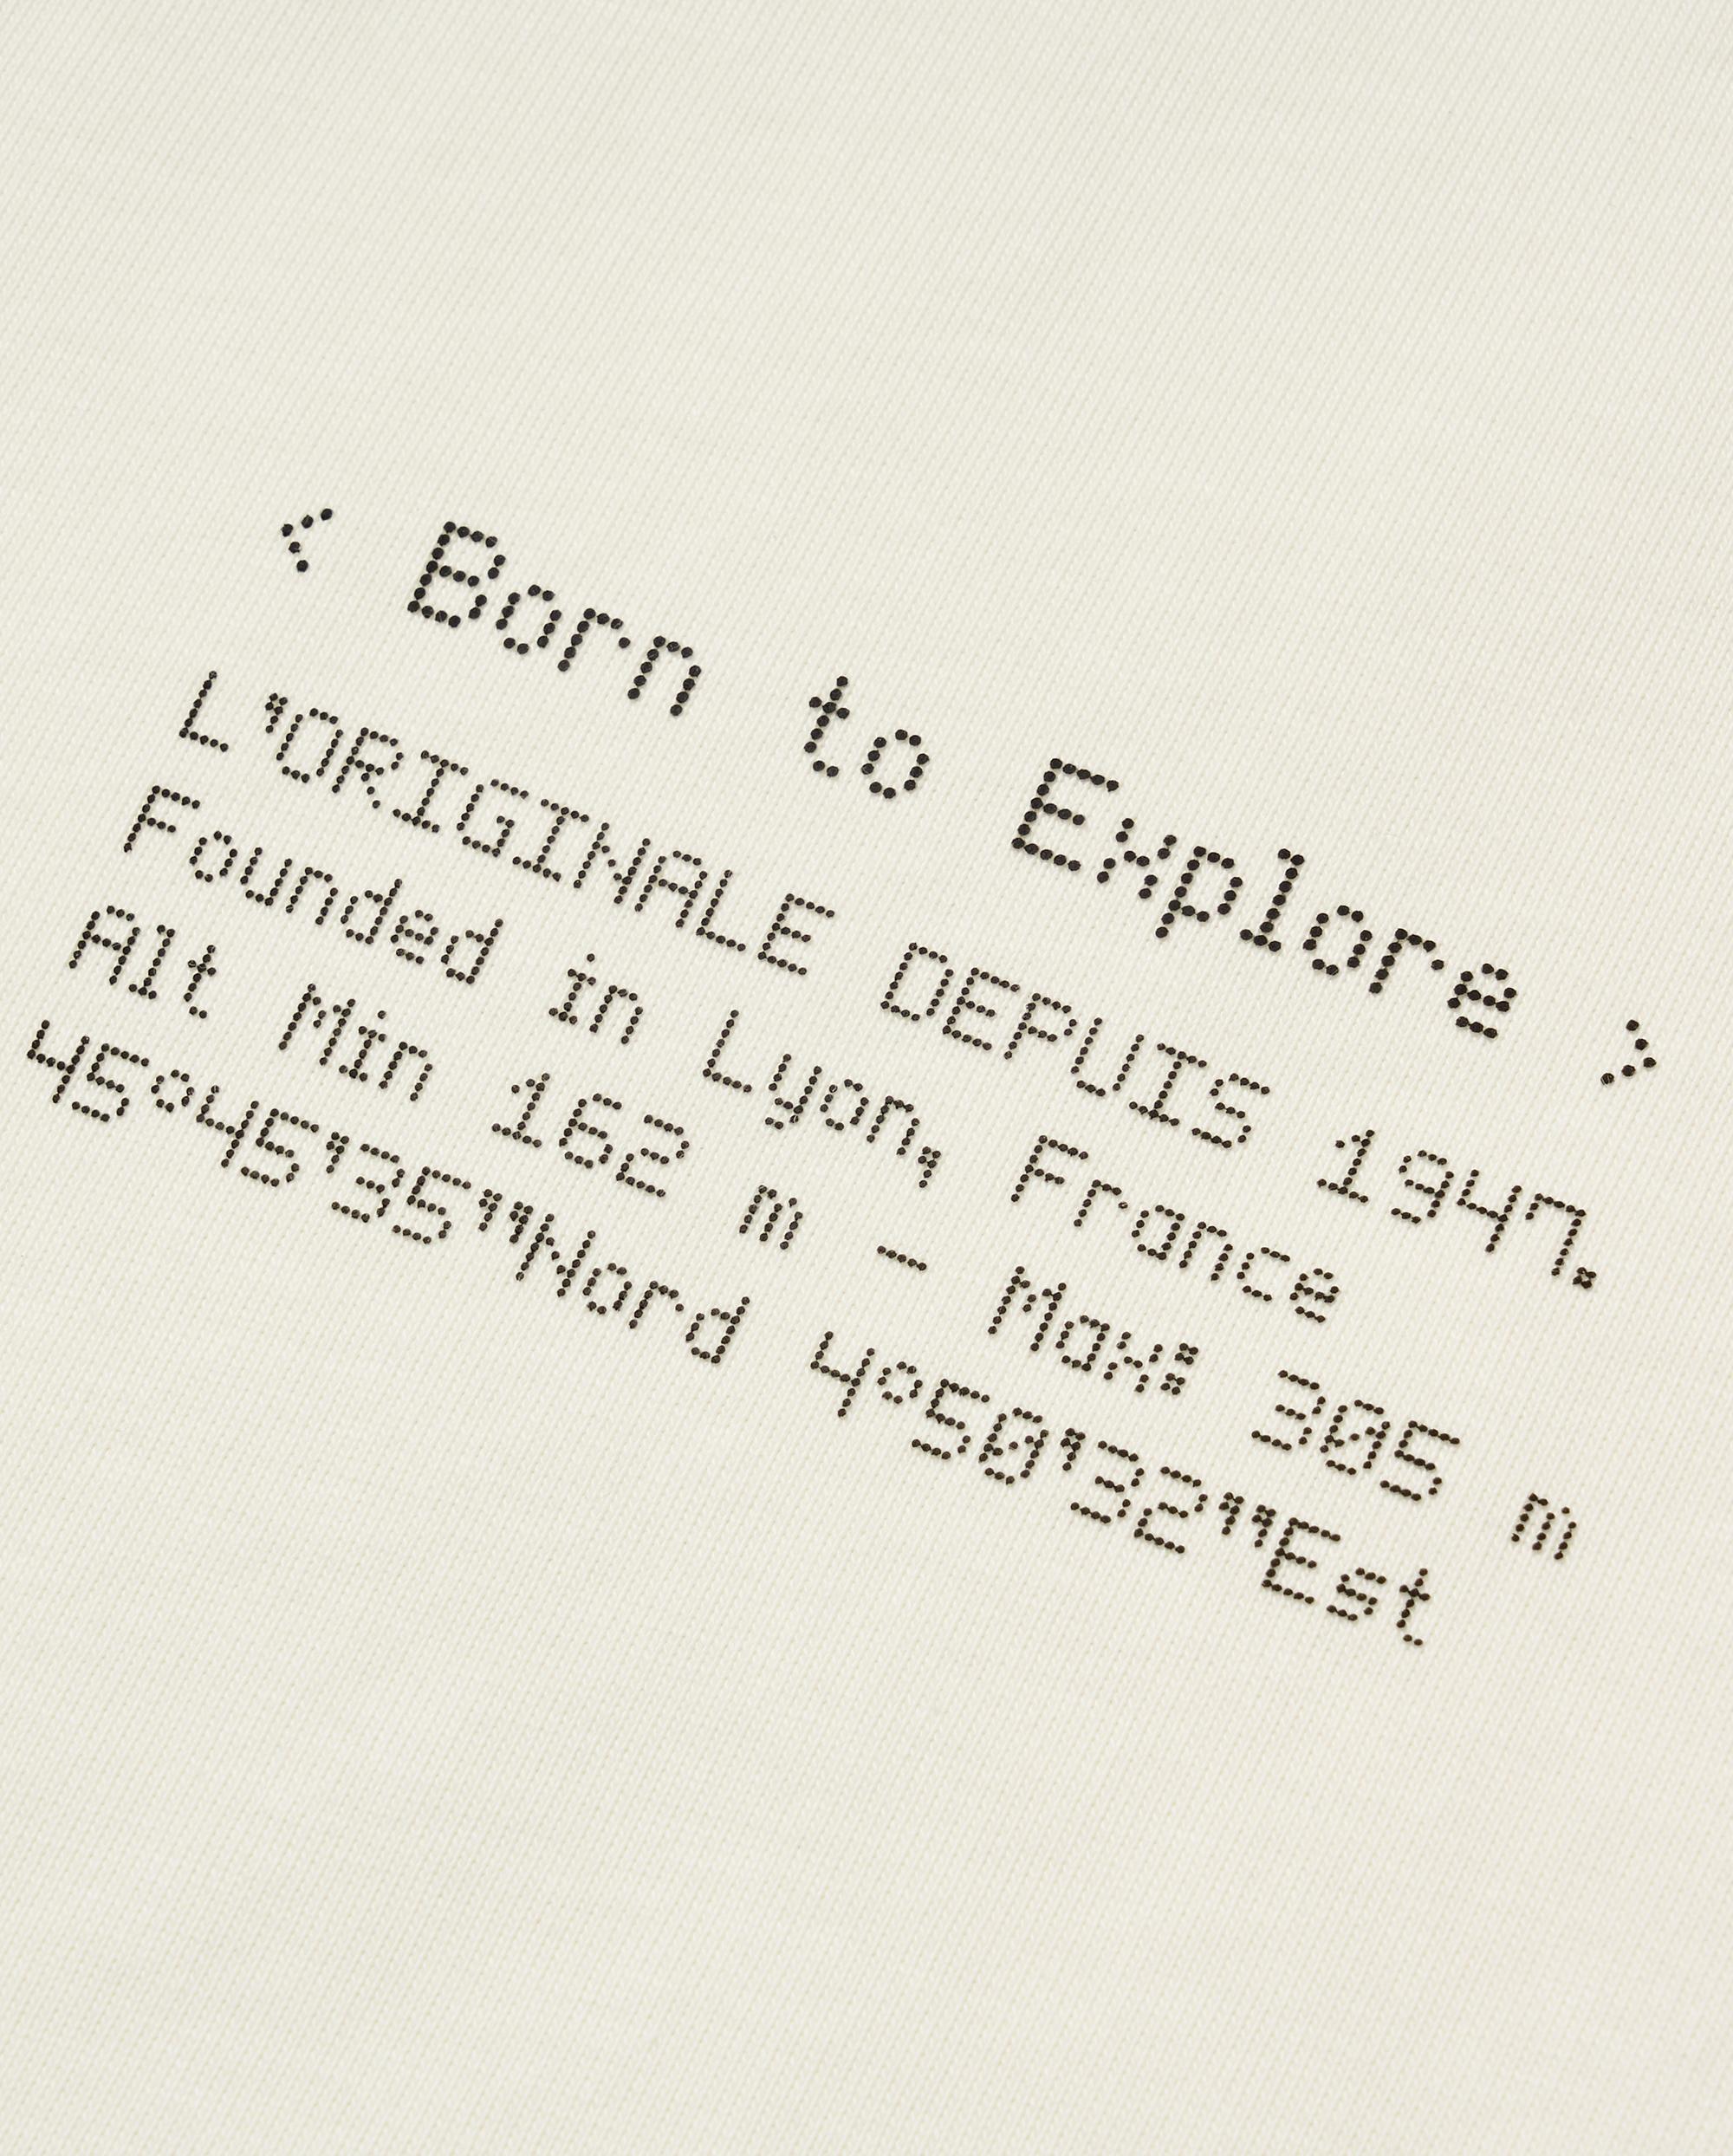 < Born to Explore >
L'ORIGINALE DEPUIS 1947.
Founded in Lyon, France
Alt Min 162 m - Max: 305 m
45°45'35''Nord 4°50'32''Est